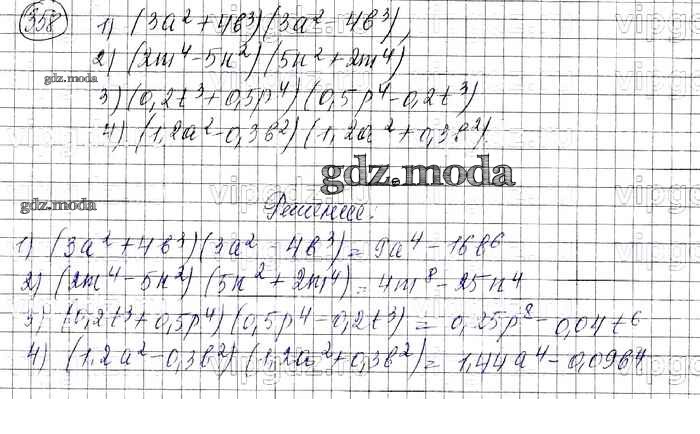 358
1) (3a² + 4b³)(3a² - 4b³),
2) (2m⁴ - 5n²)(5n² + 2m⁴)
gdz.moda
3) (0,2t³ + 0,5p⁴)(0,5p⁴ - 0,2t³)
4) (1,2a² - 0,3b²)(1,2a² + 0,3b²).
gdz.moda
gdz.moda
Решение.
1) (3a² + 4b³)(3a² - 4b³) = 9a⁴ - 16b⁶
2) (2m⁴ - 5n²)(5n² + 2m⁴) = 4m⁸ - 25n⁴
3) (0,2t³ + 0,5p⁴)(0,5p⁴ - 0,2t³) = 0,25p⁸ - 0,04t⁶
4) (1,2a² - 0,3b²)(1,2a² + 0,3b²) = 1,44a⁴ - 0,09b⁴